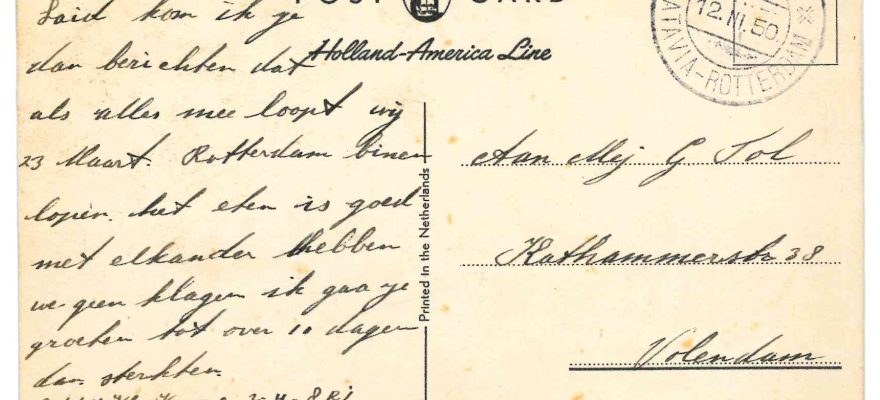 POST CARD
Holland-America Line
ATAVIA-ROTTERDAM
12.III.50
Said kom ik je
dan berichten dat
als alles mee loopt wij
23 Maart. Rotterdam binen
lopen. het eten is goed
met elkander hebben
we geen klagen ik gaa je
groeten tot over 10 dagen
dan sterkten.
Printed in the Netherlands
Aan Mej G Tol
Kathammerstr 38
Volendam